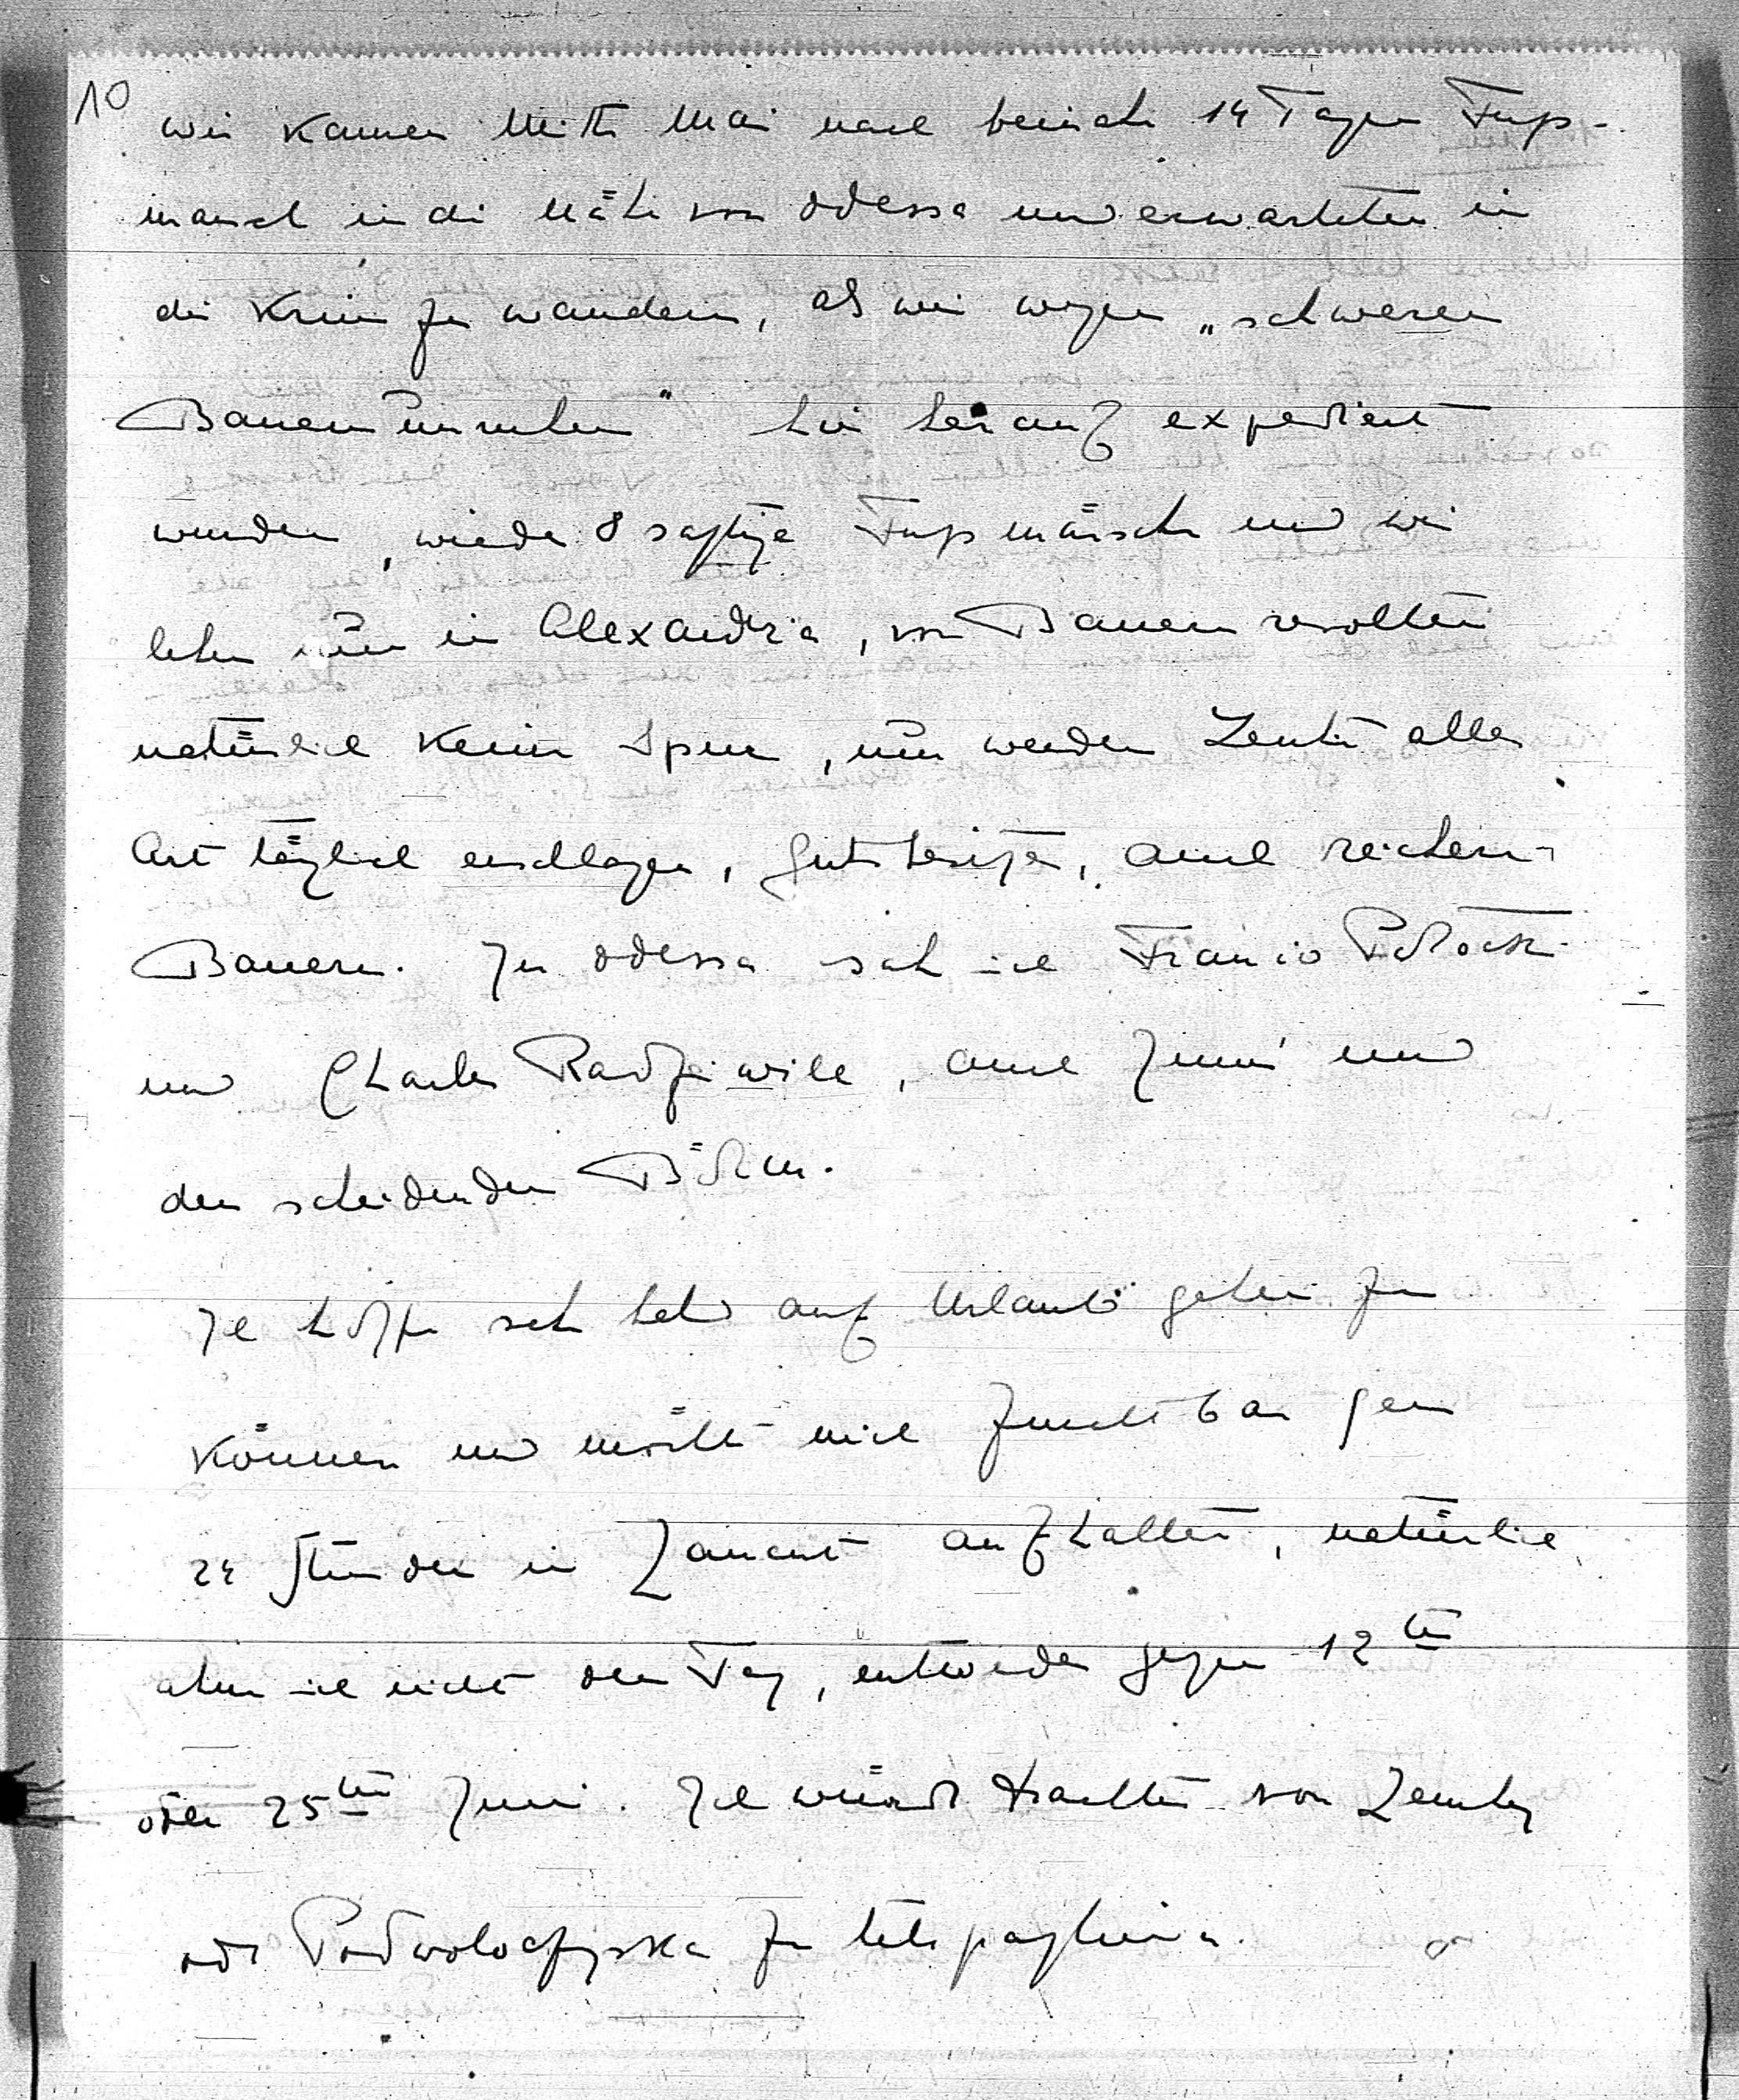 10
wir kamen Mitte Mai nach beinahe 14 Tagen Fuß-
marsch in die Nähe von Odessa und erwarteten in
die Krim zu wandern, als wir wegen „schweren
Bauernunruhen" hier herauf expediert
wurden, wieder 8 saftige Fußmärsche und wir
leben nun in Alexandria, von Bauernrevolten
natürlich keine Spur, nur werden Leute aller
Art täglich erschlagen, Gutsbesitzer, auch reichere
Bauern. In Odessa sah ich Francis Potocki
und Charles Radziwill, auch und
den scheidenden Böhm.
Ich hoffe sehr bald auf Urlaub gehen zu
können und möchte mich furchtbar gern
24 Stunden in Lancut aufhalten, natürlich
ahne ich nicht den Tag, entweder gegen 12ten
oder 25ten Juni. Ich würde trachten von Lemberg
oder Podwoloczyska zu telegraphieren.